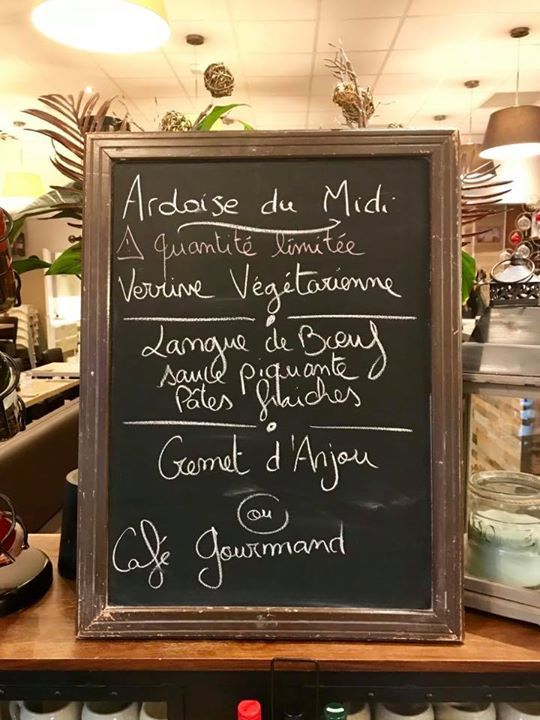 Ardoise du Midi
⚠ quantité limitée
Verrine Végétarienne
Langue de Bœuf
sauce piquante
Pâtes fraiches
Cremet d'Anjou
ou
Café gourmand